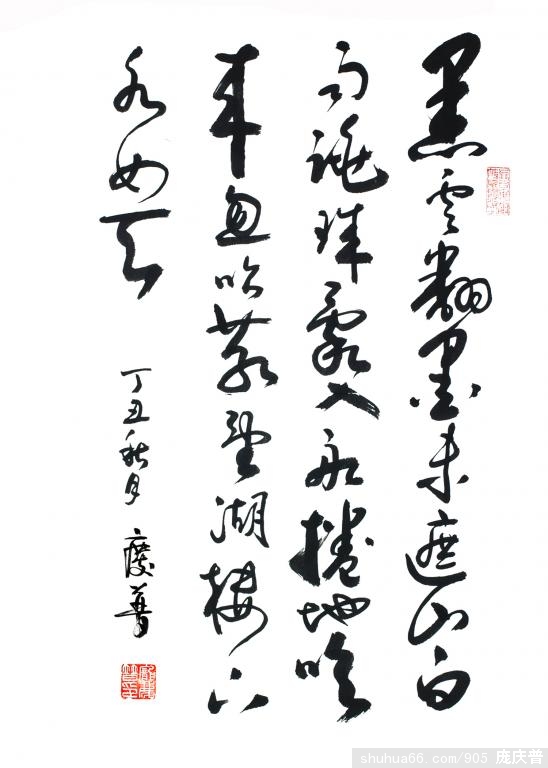 黑雲翻墨未遮山白
雨跳珠亂入船捲地
来忽吹散望湖楼下
水如天
丁丑秋月 慶普
shuhua66.com/905 庞庆普